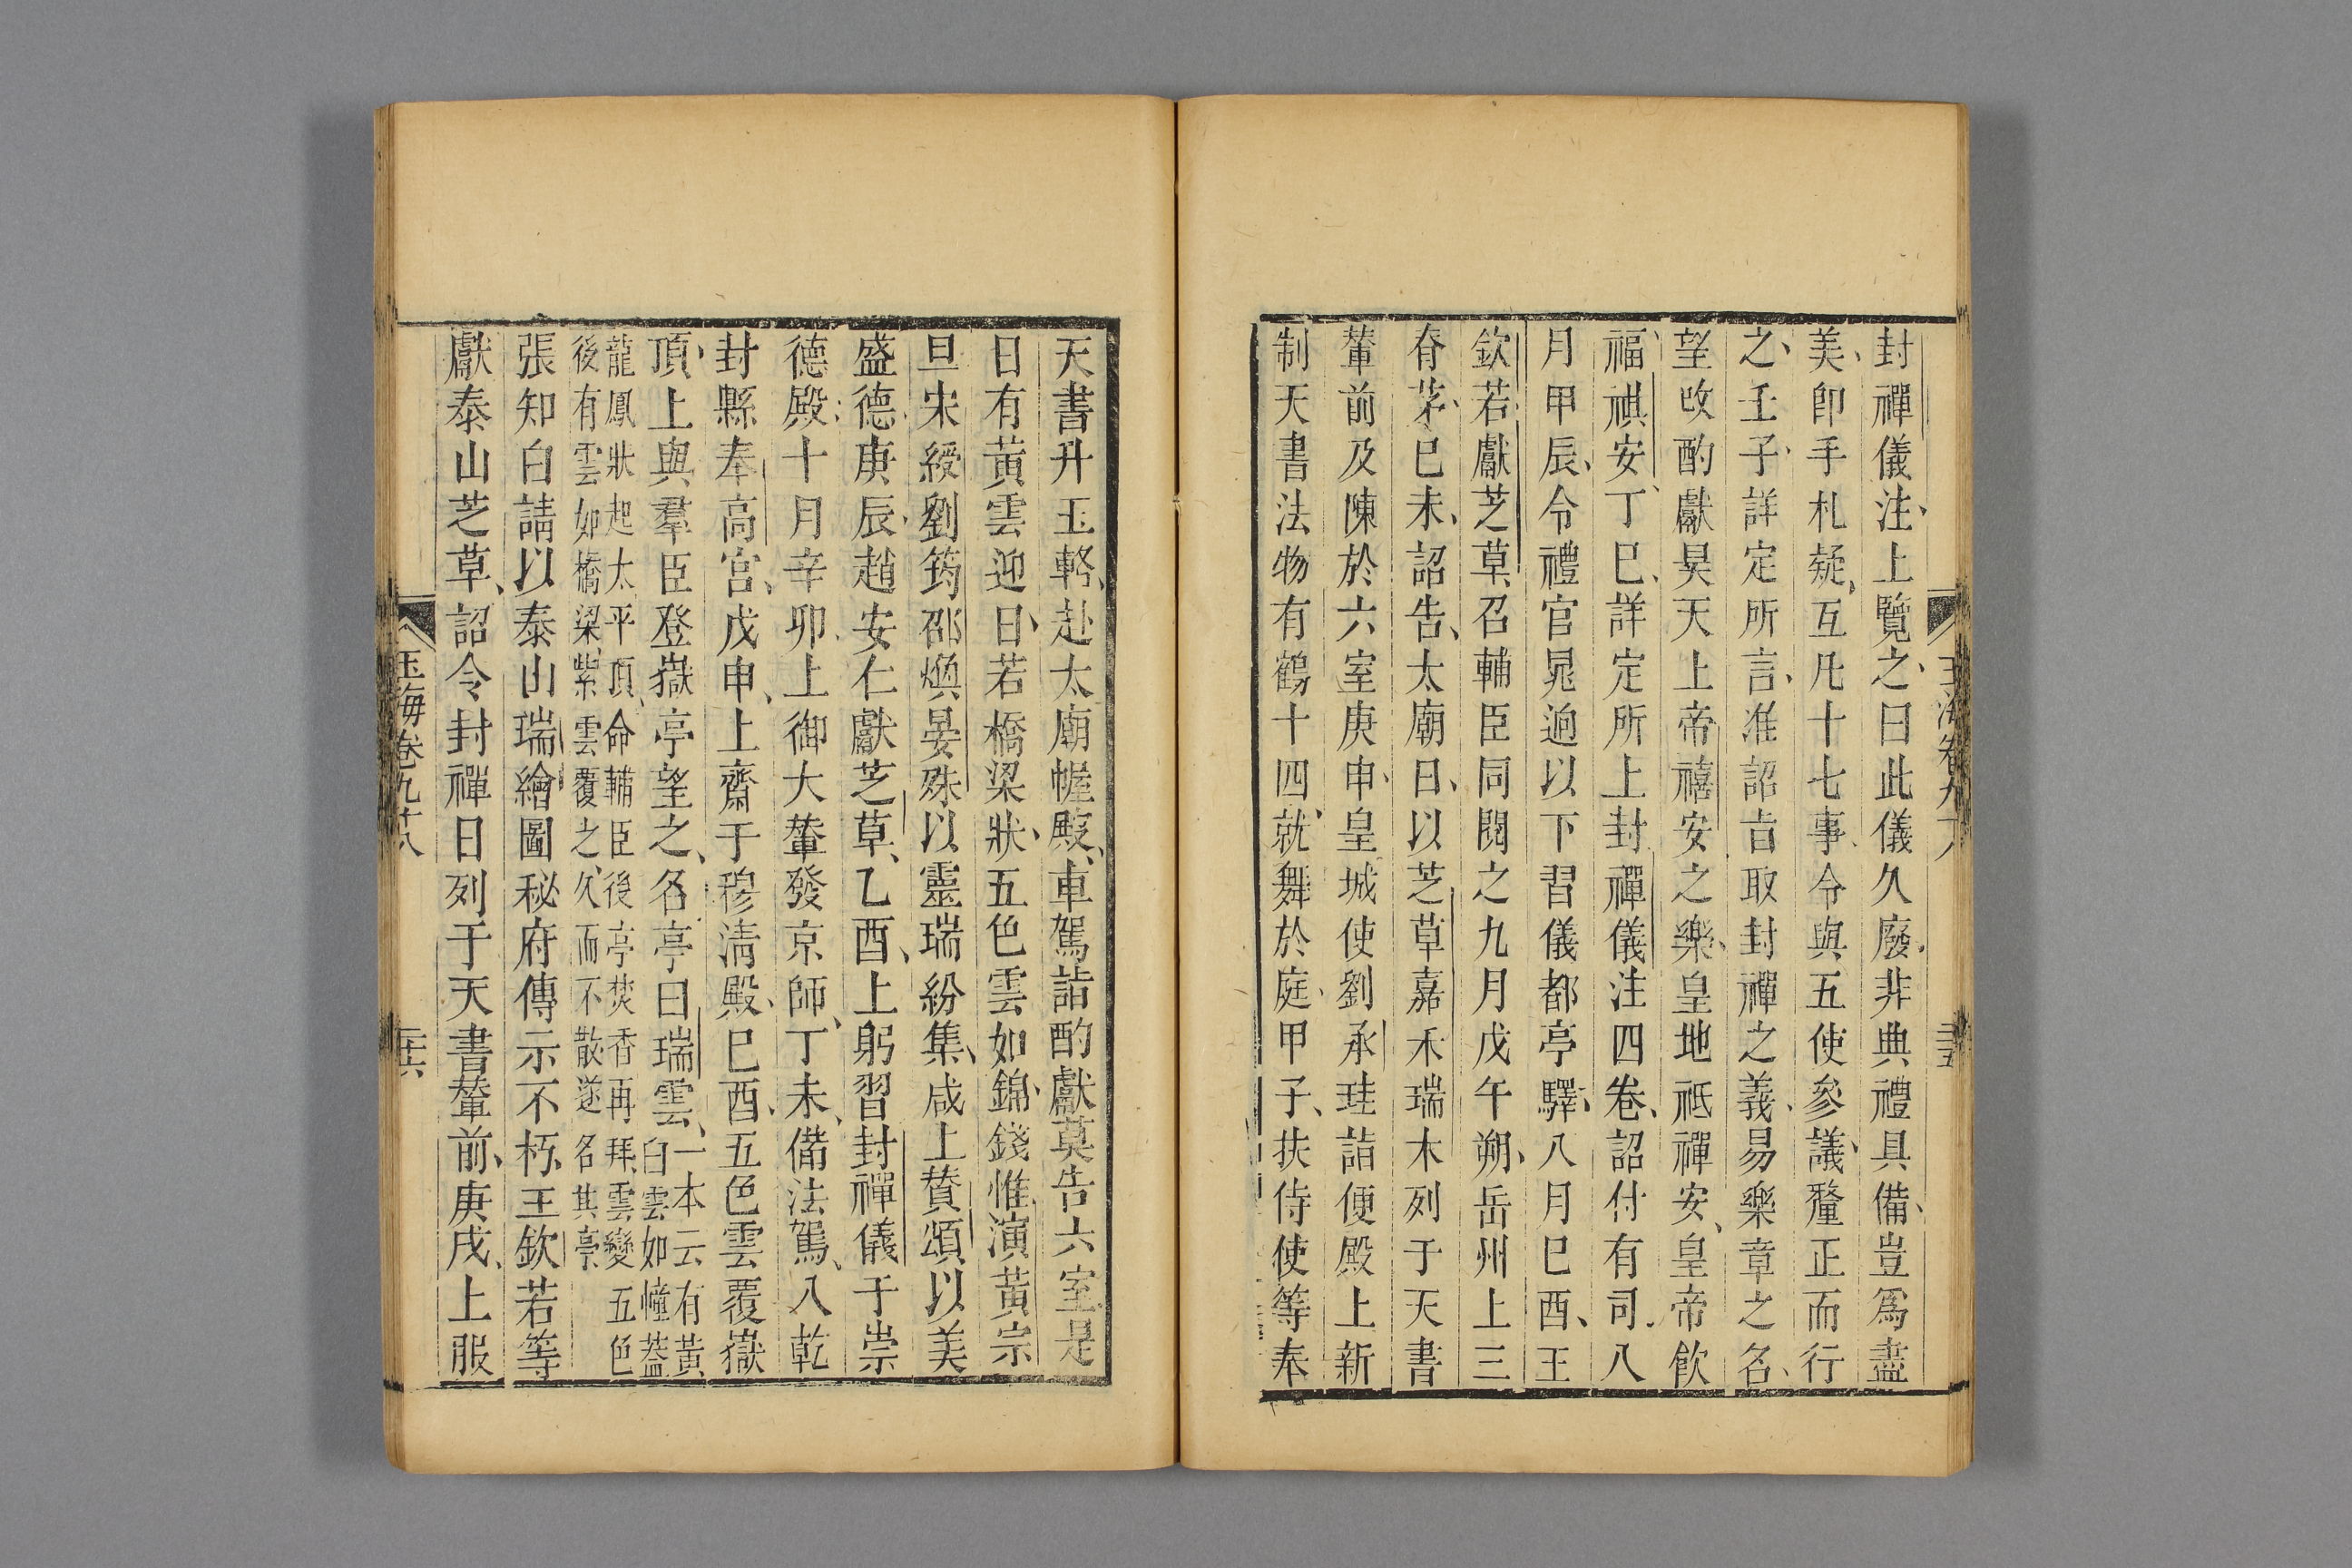 封禪儀注上覽之曰此儀久廢非典禮具備豈爲盡
美卽手札疑互凡十七事令與五使參議釐正而行
之壬子詳定所言准詔㫖取封禪之義易樂章之名
望改酌獻昊天上帝禧安之樂皇地祇禪安皇帝飮
福祺安丁巳詳定所上封禪儀注四卷詔付有司八
月甲辰令禮官晁迥以下習儀都亭驛八月巳酉王
欽若獻芝草召輔臣同閱之九月戊午朔岳州上三
脊茅巳未詔告太廟日以芝草嘉禾瑞木列于天書
輦前及陳於六室庚申皇城使劉承珪詣便殿上新
制天書法物有鶴十四就舞於庭甲子扶侍使等奉
玉海卷九十八
三十五
天書升玉輅赴太廟幄殿車駕詣酌獻奠告六室是
日有黃雲迎日若橋梁狀五色雲如錦錢惟演黃宗
旦宋綬劉筠邵煥晏殊以靈瑞紛集咸上贊頌以美
盛德庚辰趙安仁獻芝草乙酉上躬習封禪儀于崇
德殿十月辛卯上御大輦發京師丁未備法駕八乾
封縣奉高宫戊申上齋于穆淸殿巳酉五色雲覆嶽
頂上與羣臣登嶽亭望之名亭曰瑞雲一本云有黃
白雲如幢蓋
龍鳳狀起太平頂命輔臣後亭焚香再拜雲變五色
後有雲如橋梁紫雲覆之久而不散遂名其亭
張知白請以泰山瑞繪圖秘府傳示不朽王欽若等
獻泰山芝草詔令封禪日列于天書輦前庚戌上服
玉海卷九十八
三十六